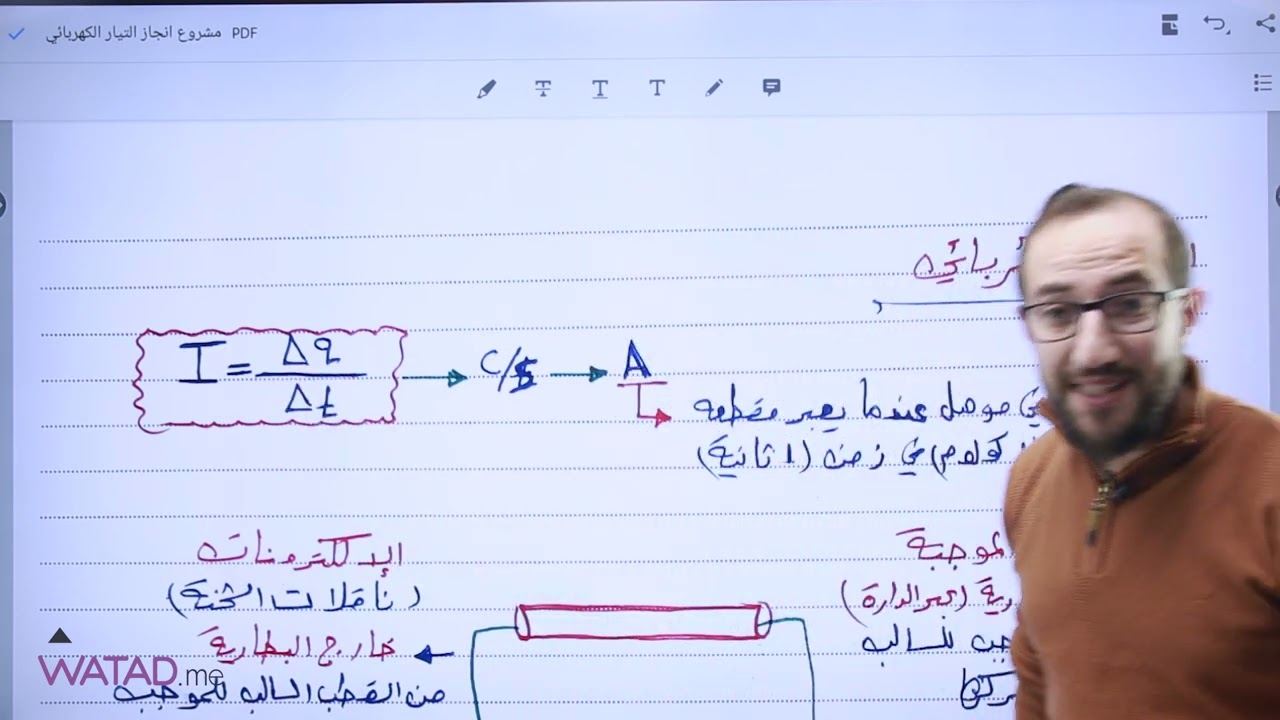 مشروع انجاز التيار الكهربائي PDF
I = Δq / Δt → C/s → A
موصل عندما يعبر مقطعه
كولوم) في زمن (1 ثانية)
الإلكترونات
(ناقلات الشحنة)
خارج البطارية
من القطب السالب للموجب
لموجبة
(عبر الدارة)
للسالب
WATAD.me